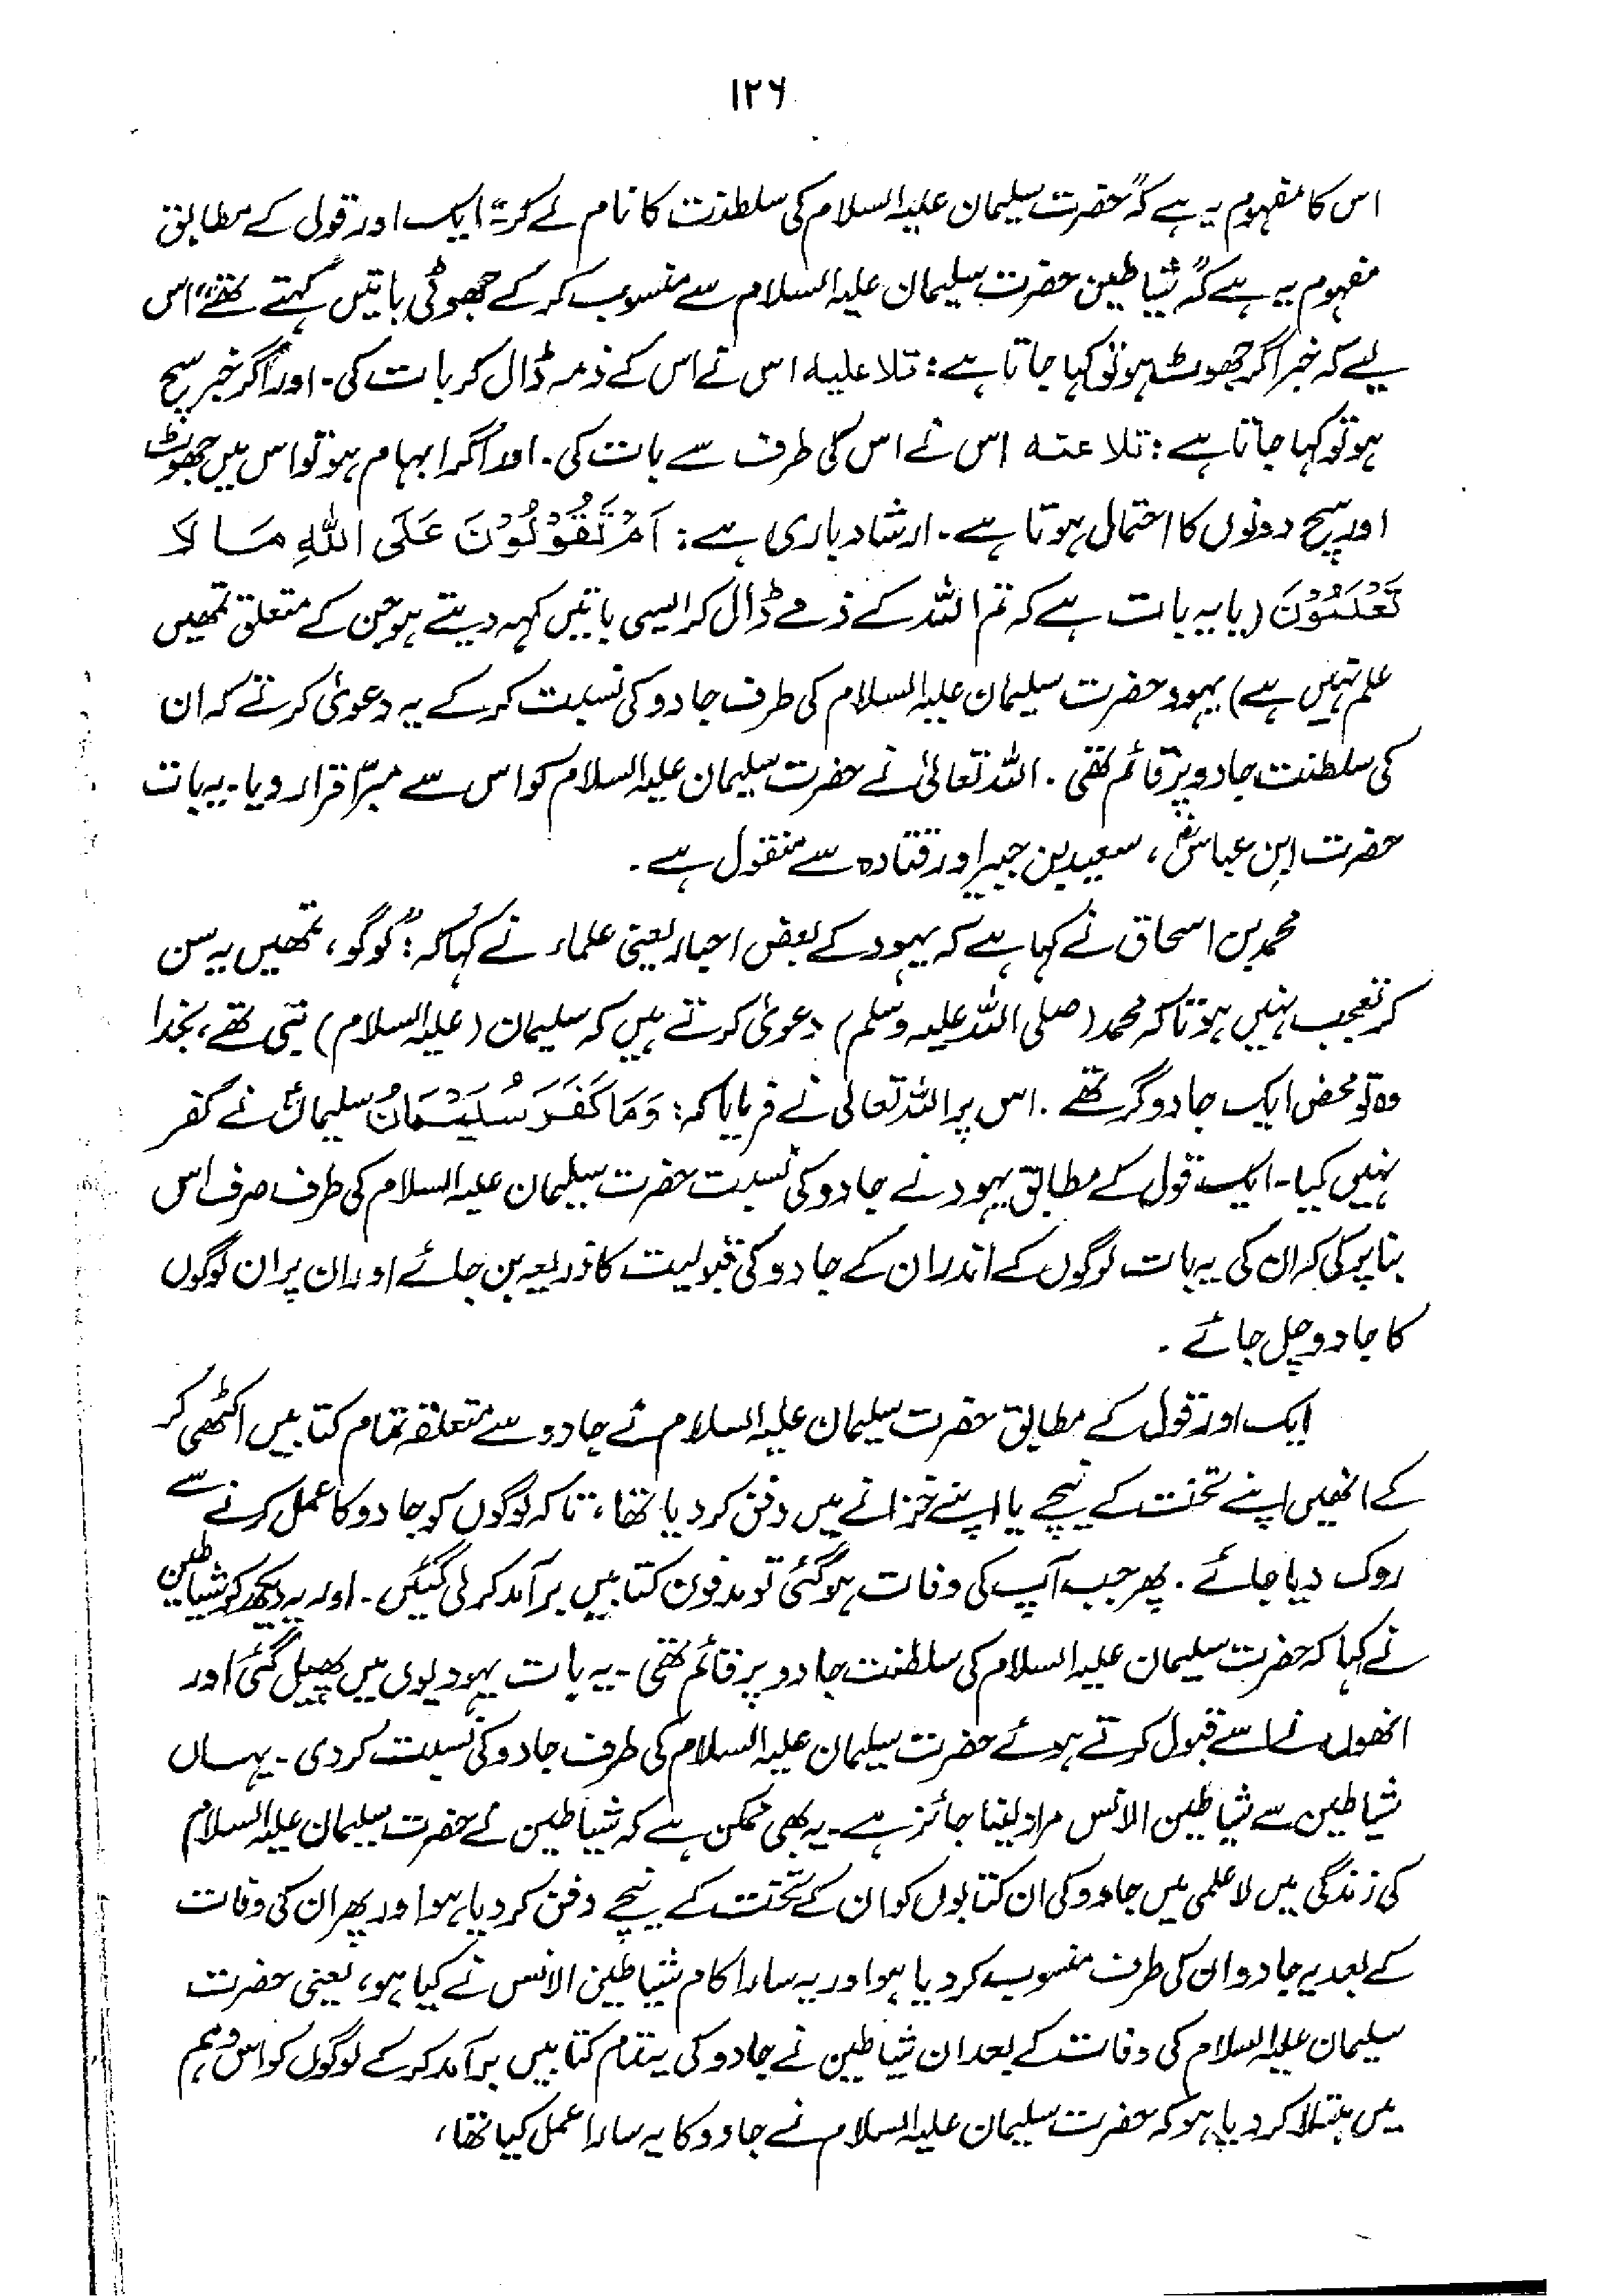 ۱۲۶
اس کا مفہوم یہ ہے کہ "حضرت سلیمان علیہ السلام کی سلطنت کا نام لے کر"۔ ایک اور قول کے مطابق
مفہوم یہ ہے کہ "شیاطین حضرت سلیمان علیہ السلام سے منسوب کر کے جھوٹی باتیں کہتے تھے" اس
لیے کہ خبر اگر جھوٹ ہو تو کہا جاتا ہے: تلا علیہ اس نے اس کے ذمہ ڈال کر بات کی۔ اور اگر خبر سچ
ہو تو کہا جاتا ہے: تلا عنہ اس نے اس کی طرف سے بات کی۔ اور اگر ابہام ہو تو اس میں جھوٹ
اور سچ دونوں کا احتمال ہوتا ہے۔ ارشاد باری ہے: اَمْ تَقُوْلُوْنَ عَلَى اللّٰهِ مَا لَا
تَعْلَمُوْنَ (یا یہ بات ہے کہ تم اللہ کے ذمے ڈال کر ایسی باتیں کہہ دیتے ہو جن کے متعلق تمھیں
علم نہیں ہے) یہود حضرت سلیمان علیہ السلام کی طرف جادو کی نسبت کر کے یہ دعویٰ کرتے کہ ان
کی سلطنت جادو پر قائم تھی۔ اللہ تعالیٰ نے حضرت سلیمان علیہ السلام کو اس سے مبرّا قرار دیا۔ یہ بات
حضرت ابن عباسؓ، سعید بن جبیر اور قتادہ سے منقول ہے۔
محمد بن اسحاق نے کہا ہے کہ یہود کے بعض احبار یعنی علماء نے کہا کہ: "لوگو، تمھیں یہ سن
کر تعجب نہیں ہوتا کہ محمد (صلی اللہ علیہ وسلم) دعویٰ کرتے ہیں کہ سلیمان (علیہ السلام) نبی تھے، بخدا
وہ تو محض ایک جادوگر تھے۔ اس پر اللہ تعالیٰ نے فرمایا کہ: وَمَا كَفَرَ سُلَيْمَانُ سلیمانؑ نے کفر
نہیں کیا۔ ایک قول کے مطابق یہود نے جادو کی نسبت حضرت سلیمان علیہ السلام کی طرف صرف اس
بنا پر کی کہ ان کی یہ بات لوگوں کے اندر ان کے جادو کی قبولیت کا ذریعہ بن جائے اور ان پر ان لوگوں
کا جادو چل جائے۔
ایک اور قول کے مطابق حضرت سلیمان علیہ السلام نے جادو سے متعلقہ تمام کتابیں اکٹھی کر
کے انھیں اپنے تخت کے نیچے یا اپنے خزانے میں دفن کر دیا تھا، تاکہ لوگوں کو جادو کا عمل کرنے سے
روک دیا جائے۔ پھر جب آپ کی وفات ہوگئی تو مدفون کتابیں برآمد کر لی گئیں۔ اور یہ دیکھ کر شیاطین
نے کہا کہ حضرت سلیمان علیہ السلام کی سلطنت جادو پر قائم تھی۔ یہ بات یہودیوں میں پھیل گئی اور
انھوں نے اسے قبول کرتے ہوئے حضرت سلیمان علیہ السلام کی طرف جادو کی نسبت کر دی۔ یہاں
شیاطین سے شیاطین الانس مراد لینا جائز ہے۔ یہ بھی ممکن ہے کہ شیاطین نے حضرت سلیمان علیہ السلام
کی زندگی میں لاعلمی میں جادو کی ان کتابوں کو ان کے تخت کے نیچے دفن کر دیا ہو اور پھر ان کی وفات
کے بعد یہ جادو ان کی طرف منسوب کر دیا ہو اور یہ سارا کام شیاطین الانس نے کیا ہو، یعنی حضرت
سلیمان علیہ السلام کی وفات کے بعد ان شیاطین نے جادو کی یہ تمام کتابیں برآمد کر کے لوگوں کو اس وہم
میں مبتلا کر دیا ہو کہ حضرت سلیمان علیہ السلام نے جادو کا یہ سارا عمل کیا تھا،